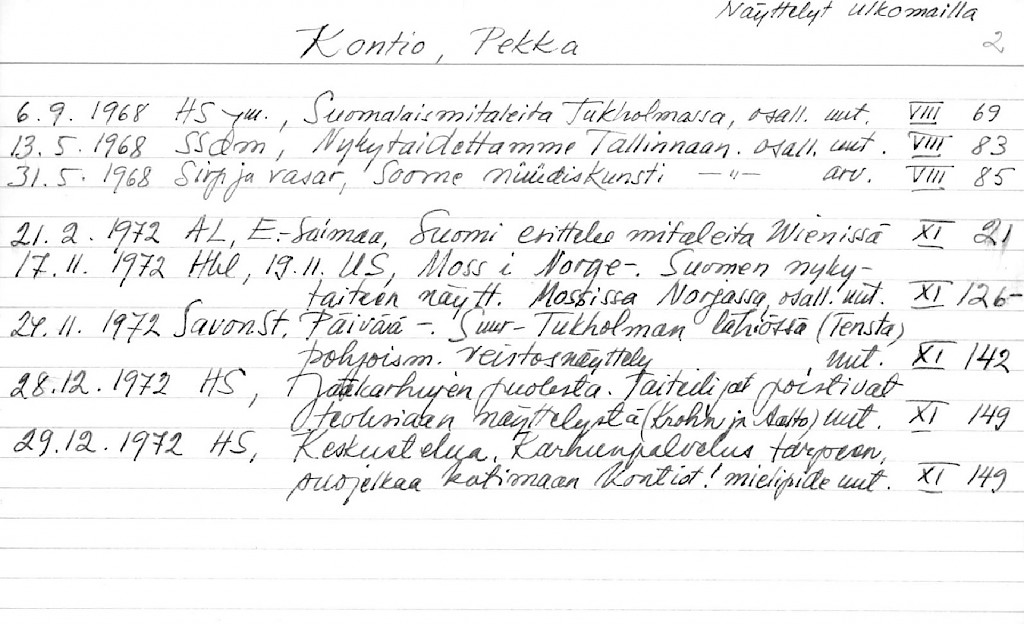 Näyttelyt ulkomailla
Kontio, Pekka 2
6.9. 1968 HS ym., Suomalaismitaleita Tukholmassa, osall. uut. VIII 69
13.5. 1968 SSdm, Nykytaidettamme Tallinnaan. osall. uut. VIII 83
31.5. 1968 Sirp ja vasar, Soome nüüdiskunsti —"— arv. VIII 85
21.2. 1972 AL, E.-Saimaa, Suomi esittelee mitaleita Wienissä XI 21
17.11. 1972 Hbl, 19.11. US, Moss i Norge-. Suomen nyky-
taiteen näytt. Mossissa Norjassa, osall. uut. XI 126-
24.11. 1972 SavonSt. Päivää -. Suur-Tukholman lähiössä (Tensta)
pohjoism. veistosnäyttely uut. XI 142
28.12. 1972 HS, Jääkarhujen puolesta. Taiteilijat poistivat
teoksiaan näyttelystä (Krohn ja Aasto) uut. XI 149
29.12. 1972 HS, Keskustelua. Karhunpalvelus tarpeen,
suojelkaa kotimaan kontiot! mielipide uut. XI 149